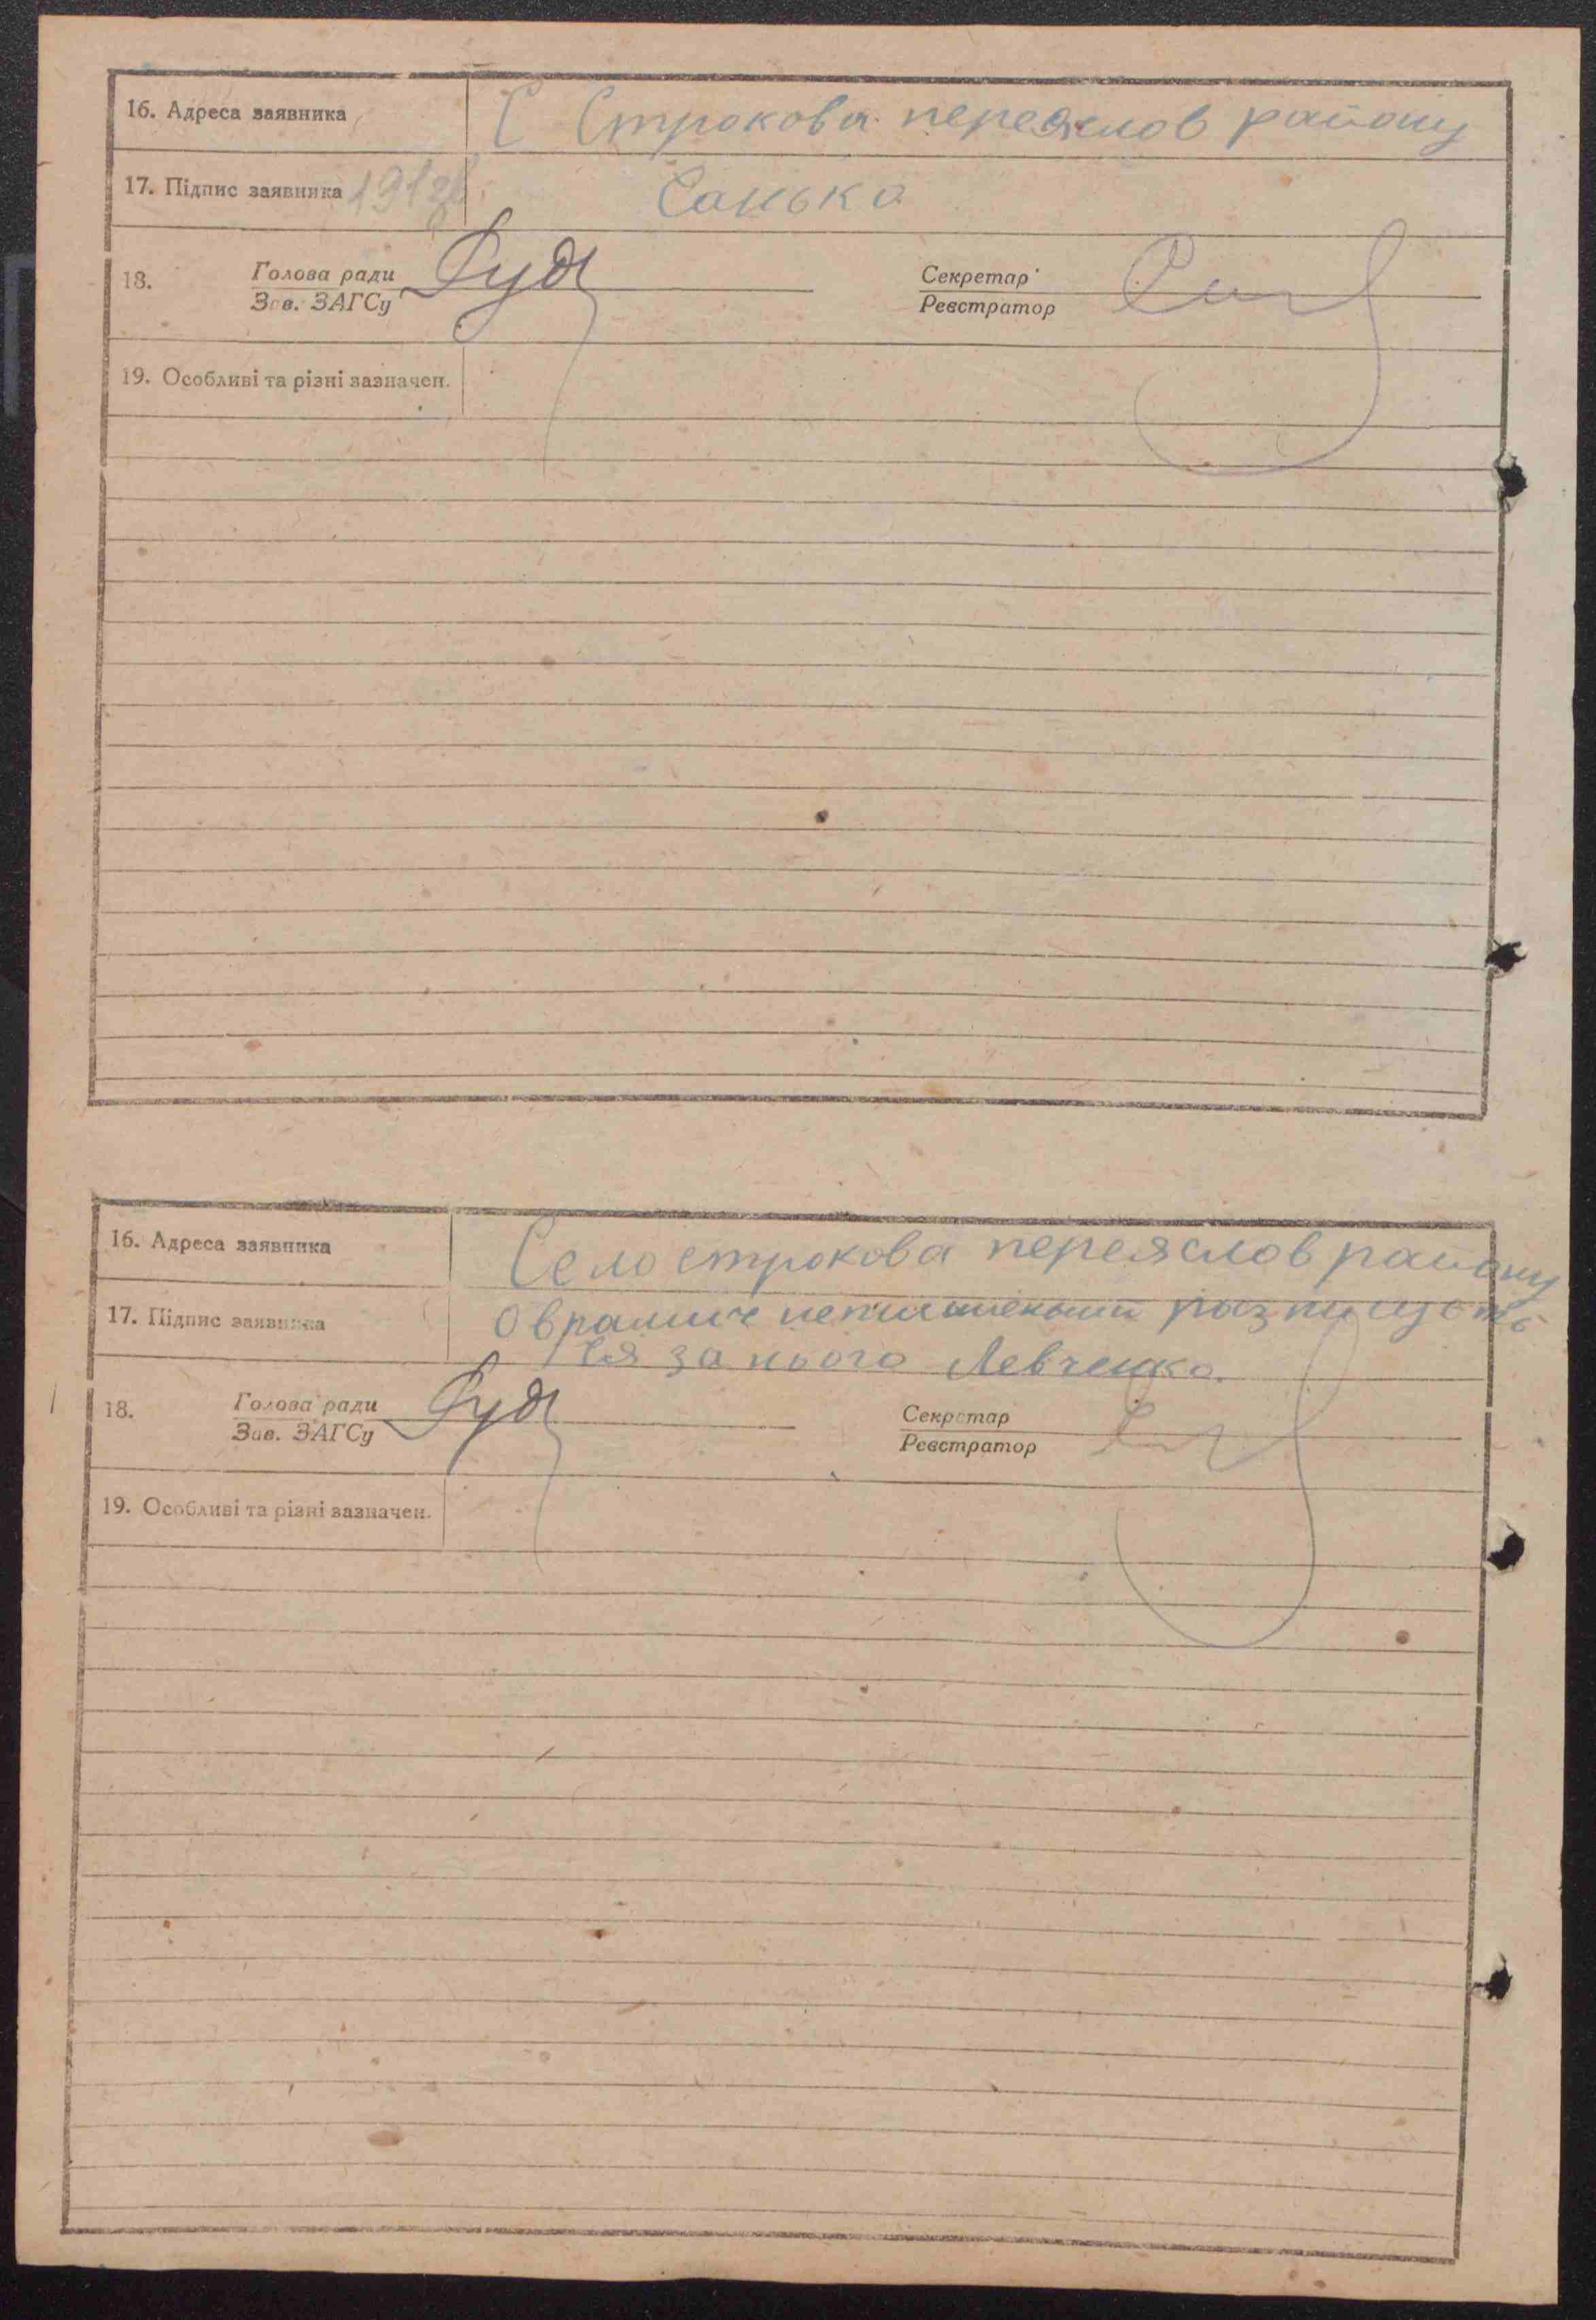 16. Адреса заявника С Строкова переяслов району
17. Підпис заявника Санька
18. Голова ради Руд Секретар
Зав. ЗАГСу Реєстратор
19. Особливі та різні зазначен.
16. Адреса заявника Село строкова переяслов району
17. Підпис заявника Оврамич розписуеть
ся за нього Левченко.
18. Голова ради Руд Секретар
Зав. ЗАГСу Реєстратор
19. Особливі та різні зазначен.